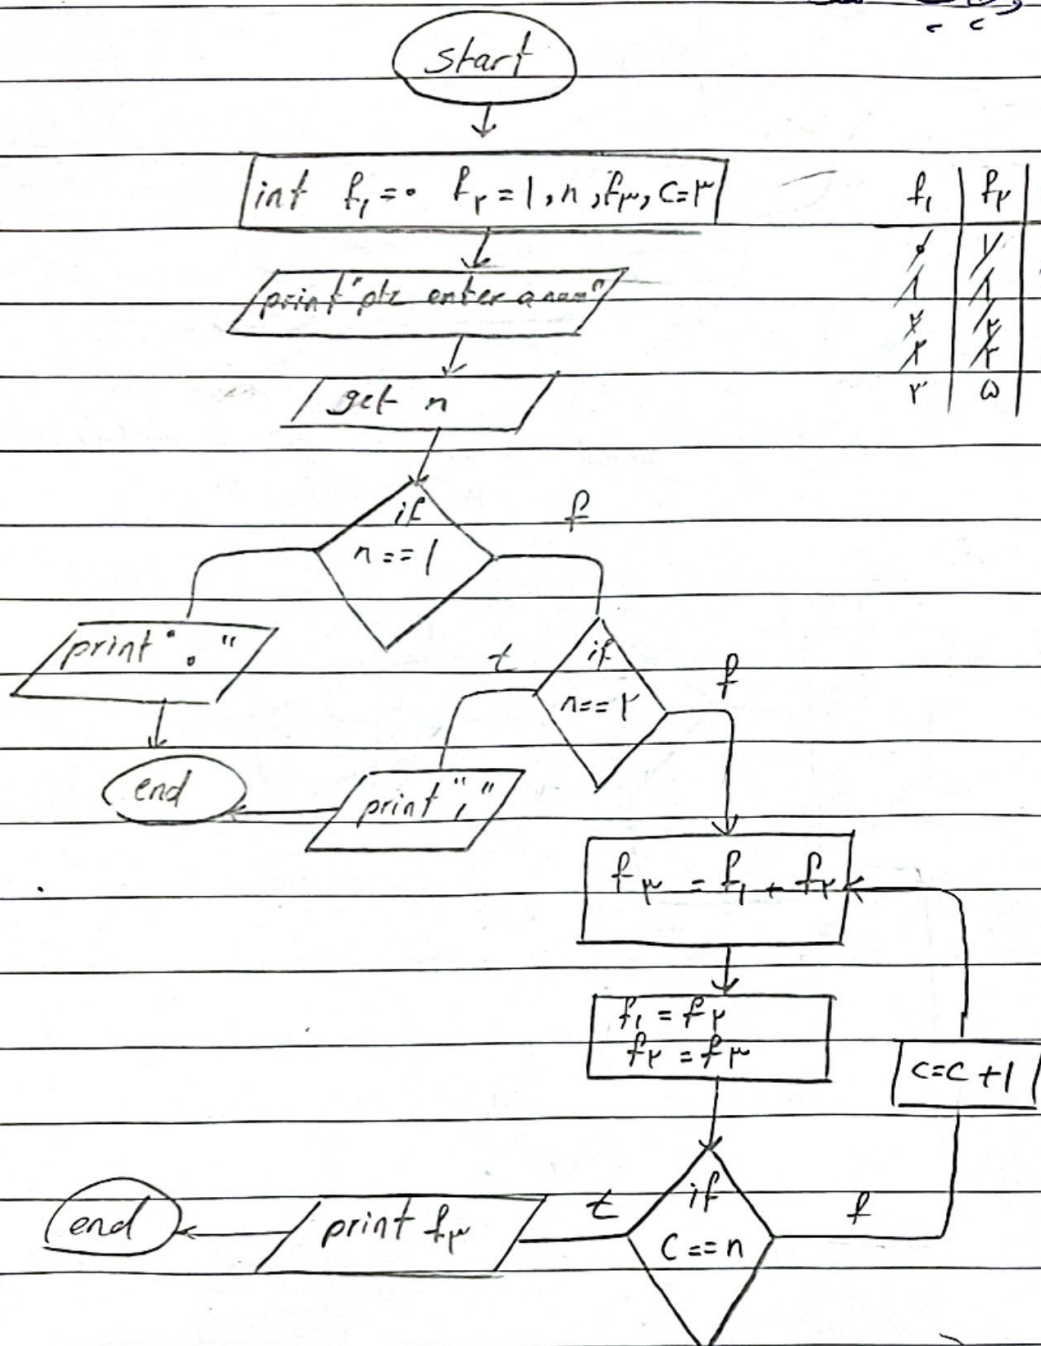 start
int f۱=۰ f۲=۱,n,f۳,c=۳
print "plz enter a num"
get n
if
n==۱
f
print "۰"
end
if
n==۲
t
f
print "۱"
f۳ = f۱ + f۲
f۱ = f۲
f۲ = f۳
c=c+۱
if
c==n
t
f
print f۳
end
f۱ f۲
۰ ۱
۱ ۱
۲ ۲
۲ ۳
۳ ۵